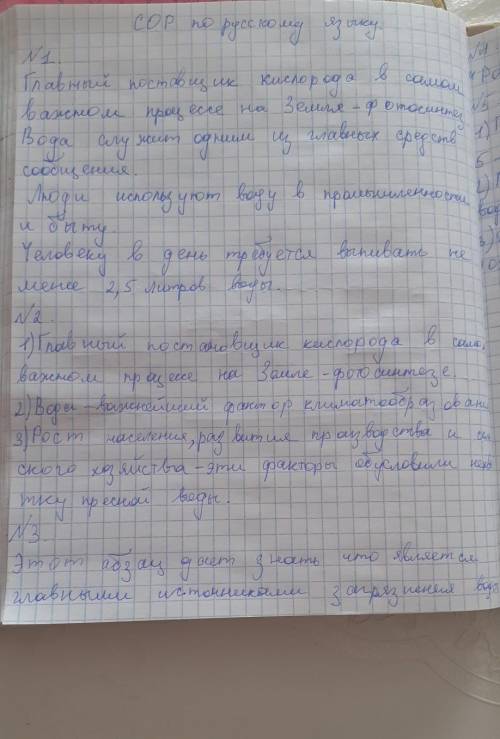 СОР по русскому языку.
№1.
Главный поставщик кислорода в самом
важном процессе на Земле - фотосинтез
Вода служит одним из главных средств
сообщения.
Люди используют воду в промышленности
и быту.
Человеку в день требуется выпивать не
менее 2,5 литров воды.
№2.
1) Главный постановщик кислорода в само
важном процессе на Земле - фотосинтезе.
2) Вода - важнейший фактор климатообразовани
3) Рост населения, развития производства и
ского хозяйства - эти факторы обусловили
тку пресной воды.
№3.
Этот абзац дает знать что является
главными источниками загрязнения воды
№4
№5
1)
5
2)
3)